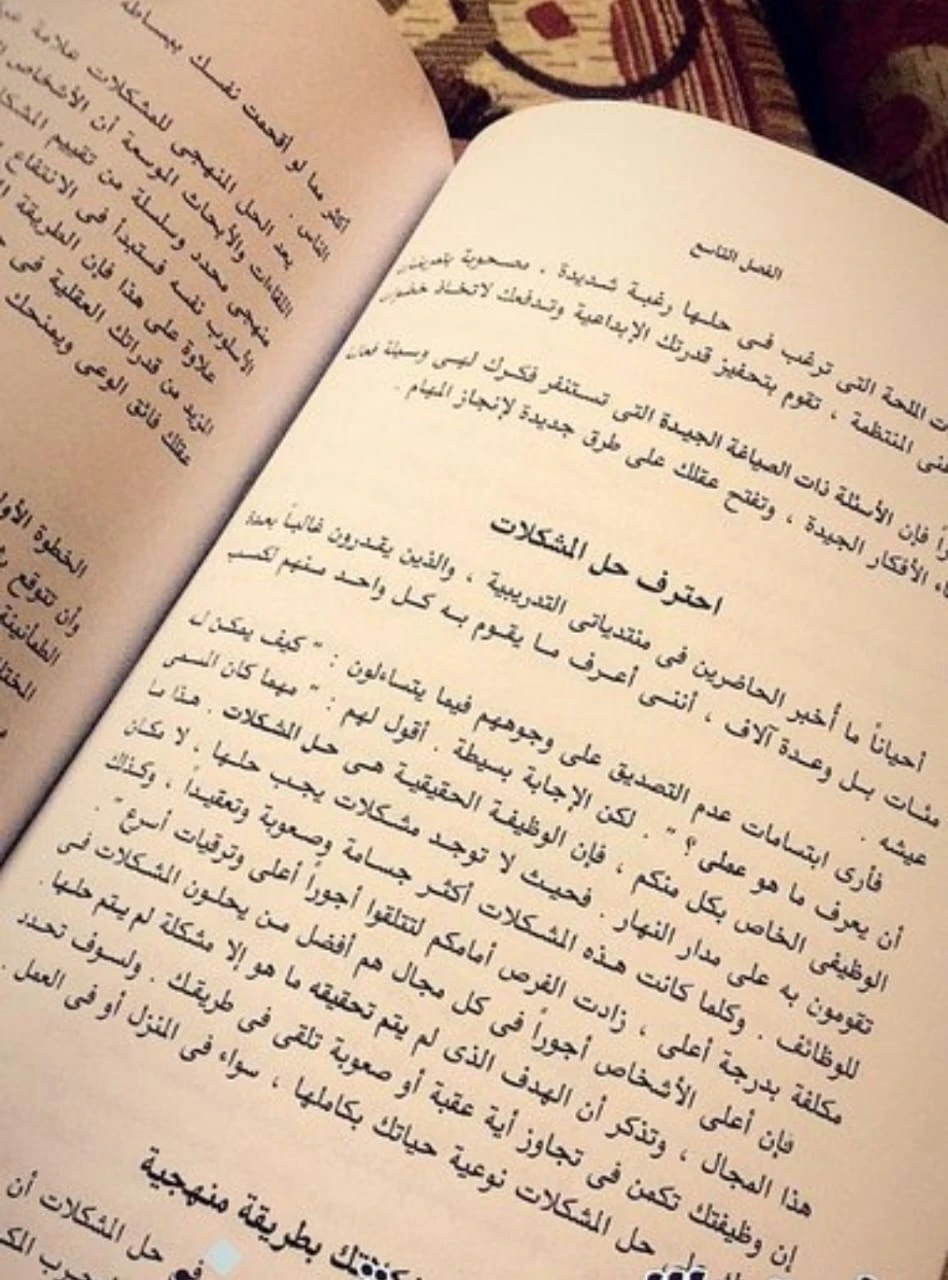 الفصل التاسع
الملحة التى ترغب فى حلها رغبة شديدة ، مصحوبة
المنتظمة ، تقوم بتحفيز قدرتك الإبداعية وتدفعك لاتخاذ خطوات
فإن الأسئلة ذات الصياغة الجيدة التى تستنفر فكرك لهى وسيلة
الأفكار الجيدة ، وتفتح عقلك على طرق جديدة لإنجاز المهام .
احترف حل المشكلات
أحياناً ما أخبر الحاضرين فى منتدياتى التدريبية ، والذين يقدرون غالباً بعدة
مئات بل وعدة آلاف ، أننى أعرف ما يقوم به كل واحد منهم لكسب
عيشه .
فأرى ابتسامات عدم التصديق على وجوههم فيما يتساءلون : " كيف يمكن ل
أن يعرف ما هو عملى ؟ " . لكن الإجابة بسيطة . أقول لهم : " مهما كان المسمى
الوظيفى الخاص بكل منكم ، فإن الوظيفة الحقيقية هى حل المشكلات . هذا ما
تقومون به على مدار النهار . فحيث لا توجد مشكلات يجب حلها ، لا مكان
للوظائف . وكلما كانت هذه المشكلات أكثر جسامة وصعوبة وتعقيداً ، وكذلك
مكلفة بدرجة أعلى ، زادت الفرص أمامكم لتتلقوا أجوراً أعلى وترقيات أسرع " .
فإن أعلى الأشخاص أجوراً فى كل مجال هم أفضل من يحلون المشكلات فى
هذا المجال ، وتذكر أن الهدف الذى لم يتم تحقيقه ما هو إلا مشكلة لم يتم حلها .
إن وظيفتك تكمن فى تجاوز أية عقبة أو صعوبة تلقى فى طريقك . ولسوف تحدد
حل المشكلات نوعية حياتك بكاملها ، سواء فى المنزل أو فى العمل .
بطريقة منهجية
فى حل المشكلات أن
أكثر مما لو أقحمت نفسك ببساطة
الناس .
يعد الحل المنهجى للمشكلات علامة
اللقاءات والأبحاث الموسعة أن الأشخاص
منهجى محدد وسلسلة من تقييم
الأسلوب نفسه فستبدأ فى الانتفاع
علاوة على هذا فإن الطريقة
المزيد من قدراتك العقلية فى
عقلك فائق الوعى ويمنحك
الخطوة
وأن تتوقع
الطمأنينة